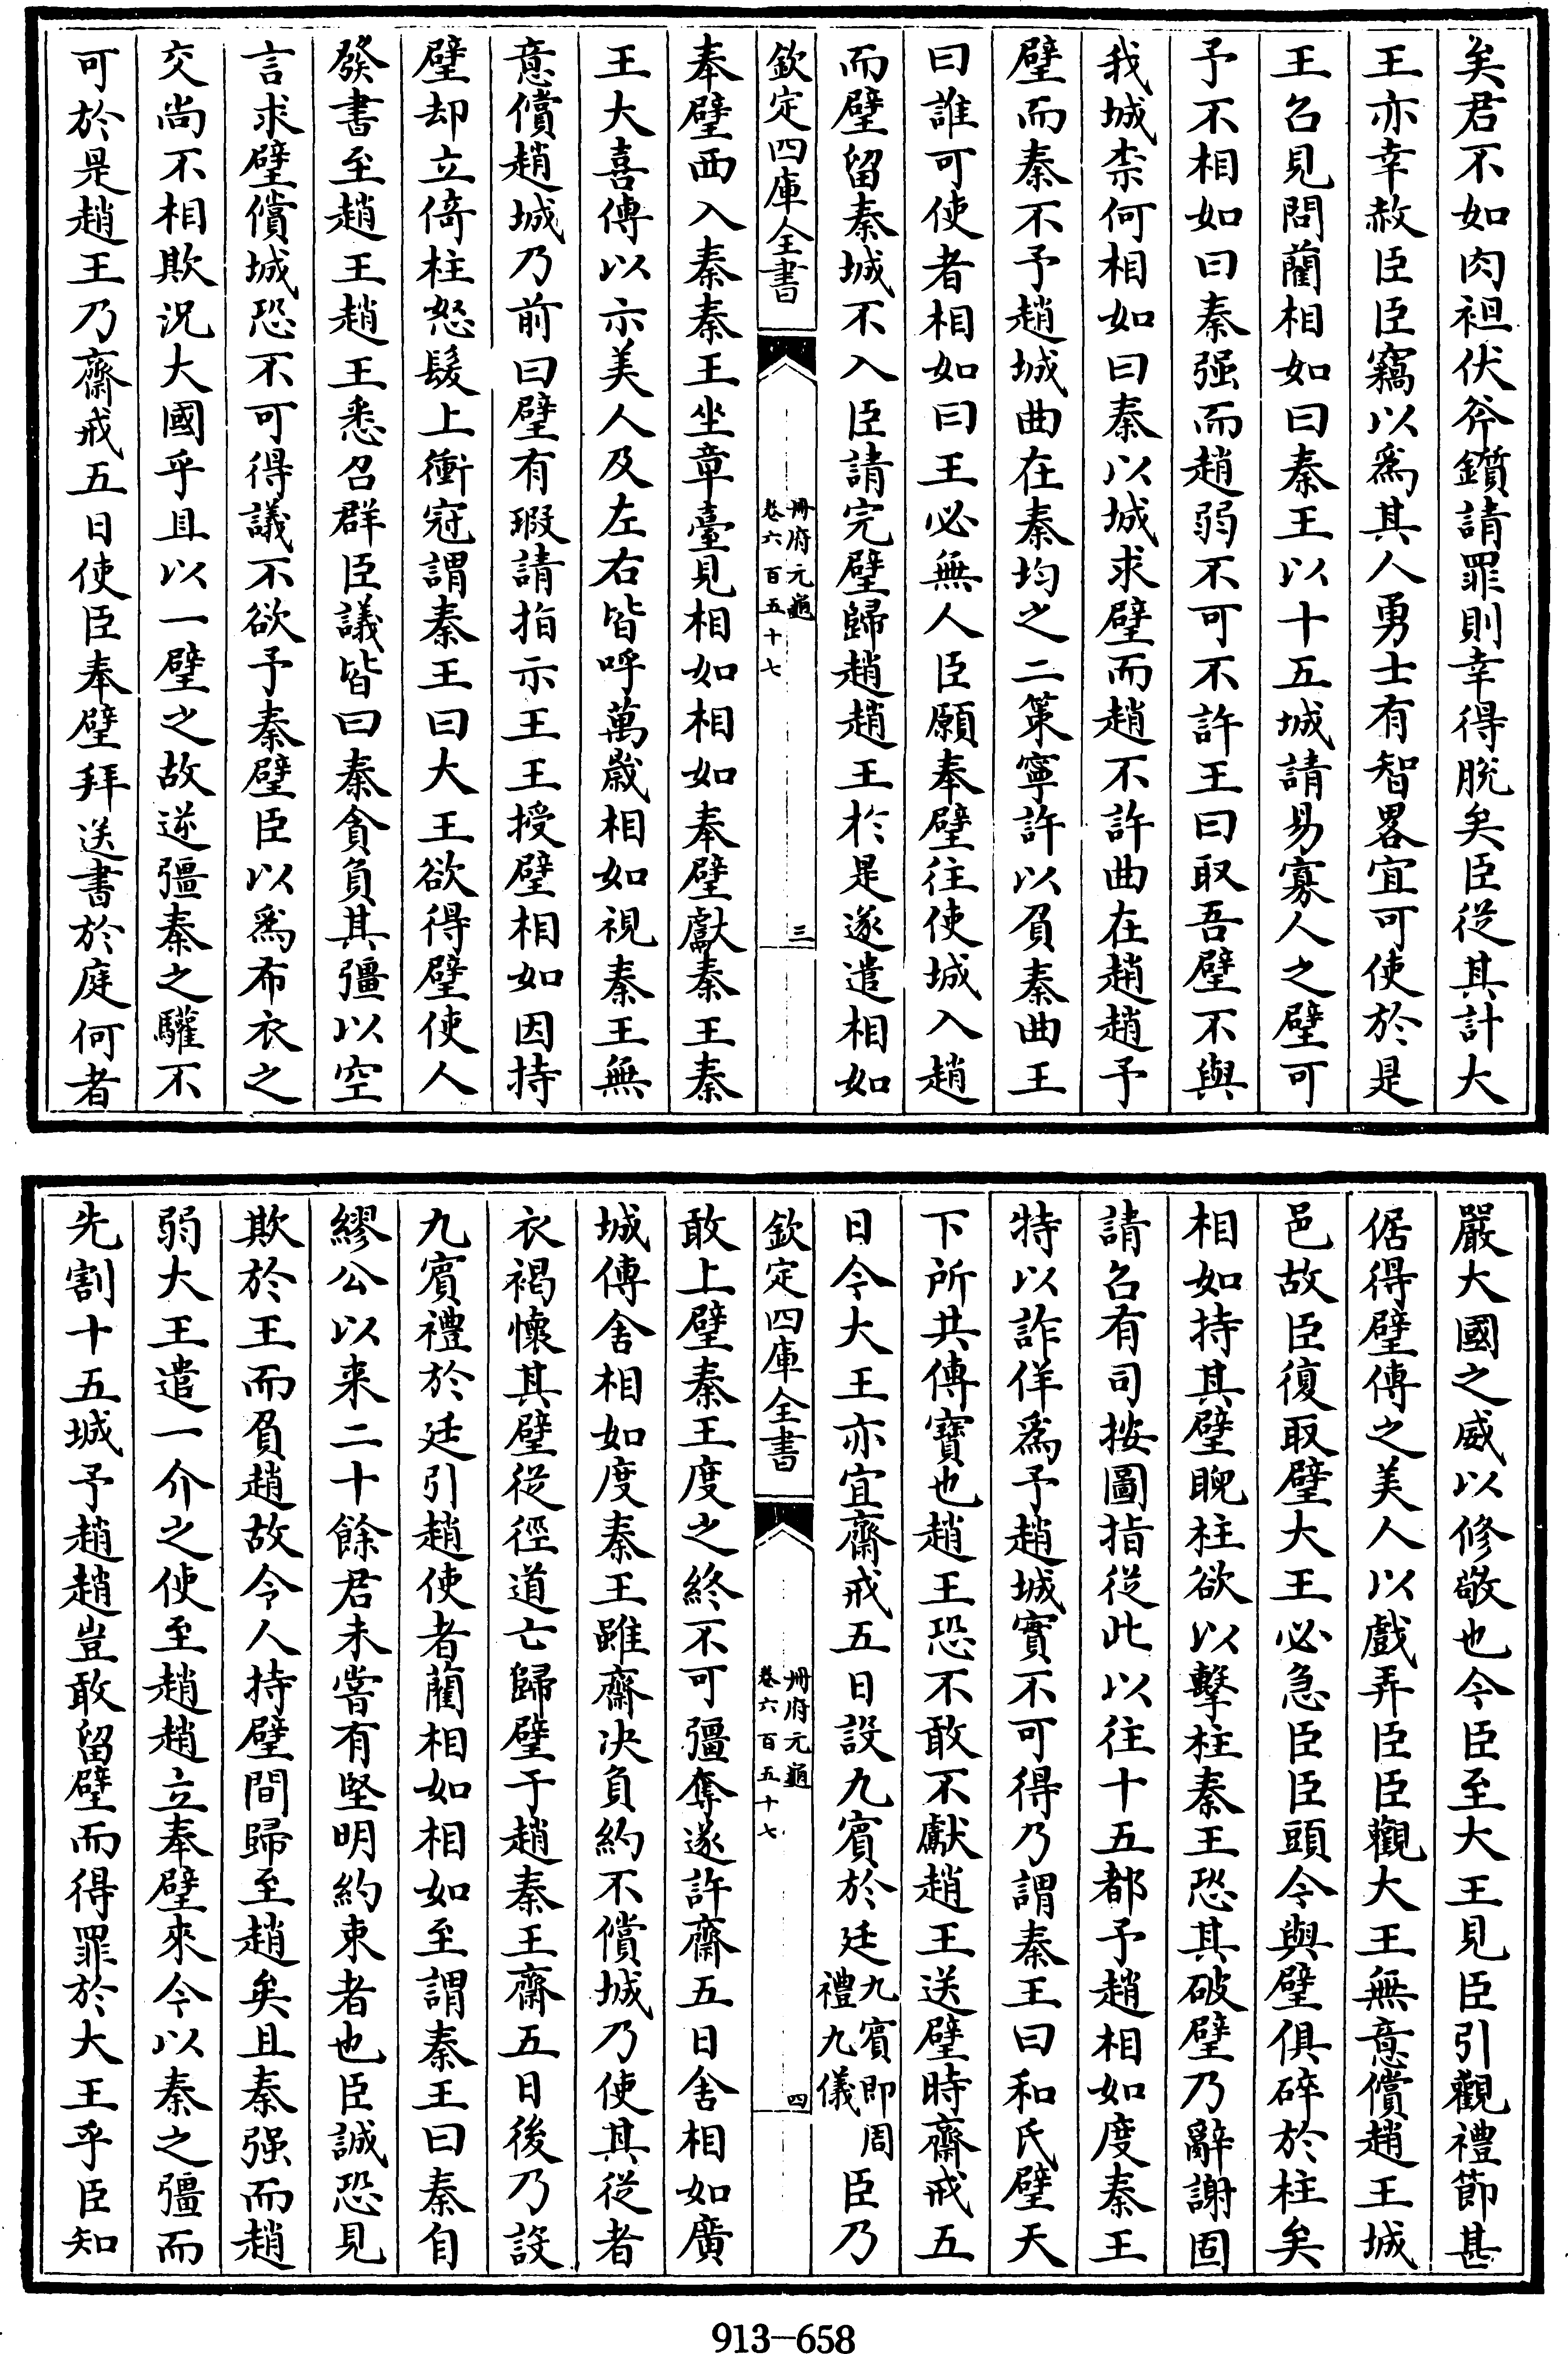 矣君不如肉袒伏斧鑕請罪則幸得脫矣臣從其計大
王亦幸赦臣臣竊以爲其人勇士有智畧宜可使於是
王召見問藺相如曰秦王以十五城請易寡人之璧可
予不相如曰秦强而趙弱不可不許王曰取吾璧不與
我城柰何相如曰秦以城求璧而趙不許曲在趙趙予
璧而秦不予趙城曲在秦均之二策寧許以負秦曲王
曰誰可使者相如曰王必無人臣願奉璧往使城入趙
而璧留秦城不入臣請完璧歸趙趙王於是遂遣相如
欽定四庫全書
冊府元龜
卷六百五十七
三
奉璧西入秦秦王坐章臺見相如相如奉璧獻秦王秦
王大喜傳以示美人及左右皆呼萬歲相如視秦王無
意償趙城乃前曰璧有瑕請指示王王授璧相如因持
璧却立倚柱怒髮上衝冠謂秦王曰大王欲得璧使人
發書至趙王趙王悉召群臣議皆曰秦貪負其彊以空
言求璧償城恐不可得議不欲予秦璧臣以爲布衣之
交尚不相欺況大國乎且以一璧之故逆彊秦之驩不
可於是趙王乃齋戒五日使臣奉璧拜送書於庭何者
嚴大國之威以修敬也今臣至大王見臣引觀禮節甚
倨得璧傳之美人以戲弄臣臣觀大王無意償趙王城
邑故臣復取璧大王必急臣臣頭今與璧俱碎於柱矣
相如持其璧睨柱欲以擊柱秦王恐其破璧乃辭謝固
請召有司按圖指從此以往十五都予趙相如度秦王
特以詐佯爲予趙城實不可得乃謂秦王曰和氏璧天
下所共傳寶也趙王恐不敢不獻趙王送璧時齋戒五
日今大王亦宜齋戒五日設九賓於廷九賓即周禮九儀臣乃
欽定四庫全書
冊府元龜
卷六百五十七
四
敢上璧秦王度之終不可彊奪遂許齋五日舍相如廣
城傳舍相如度秦王雖齋決負約不償城乃使其從者
衣褐懷其璧從徑道亡歸璧于趙秦王齋五日後乃設
九賓禮於廷引趙使者藺相如相如至謂秦王曰秦自
繆公以来二十餘君未嘗有堅明約束者也臣誠恐見
欺於王而負趙故令人持璧間歸至趙矣且秦强而趙
弱大王遣一介之使至趙趙立奉璧來今以秦之彊而
先割十五城予趙趙豈敢留璧而得罪於大王乎臣知
913-658